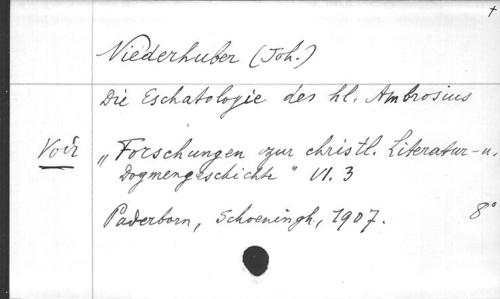 Niederhuber (Joh.)
Die Eschatologie des hl. Ambrosius
Voir „Forschungen zur christl. Literatur-u.
Dogmengeschichte" VI. 3
Paderborn, Schoeningh, 1907. 8°